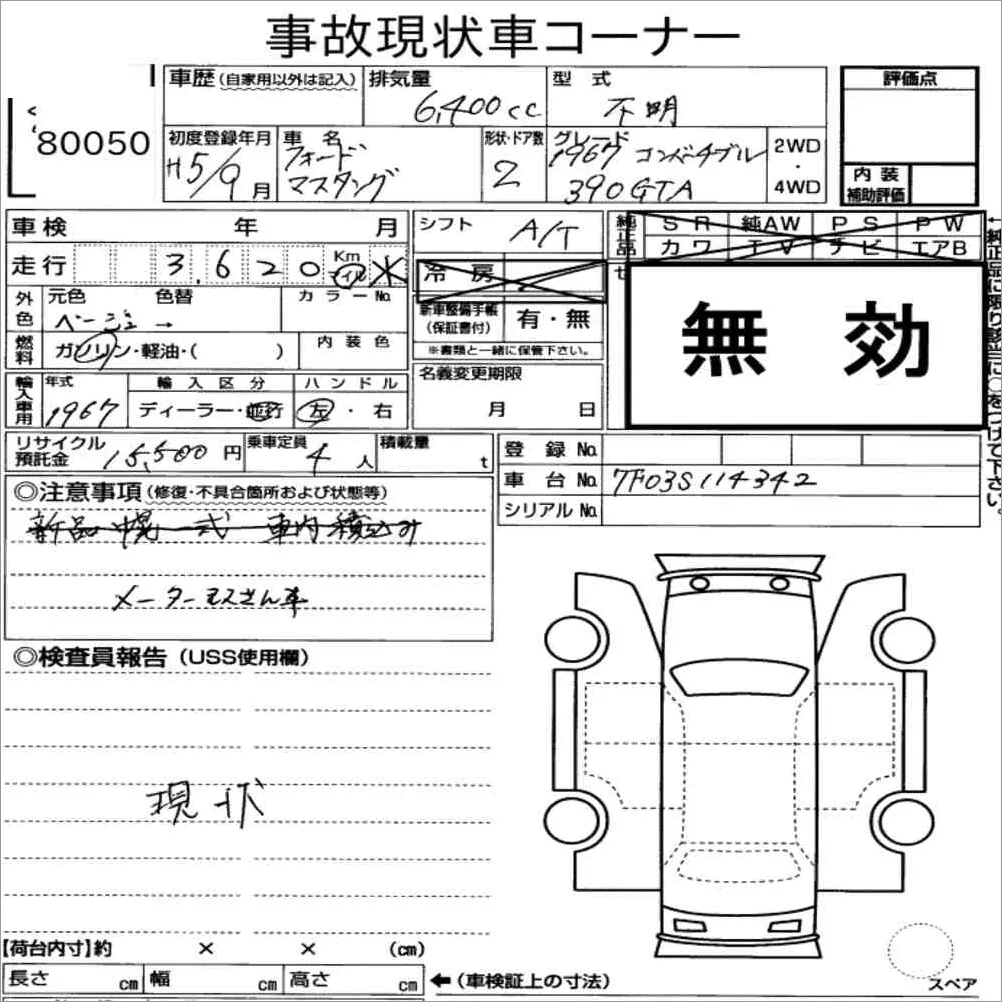 事故現状車コーナー
'80050
車歴(自家用以外は記入)
排気量
6,400cc
型式
不明
評価点
初度登録年月
H5/9月
車名
フォード
マスタング
形状・ドア数
2
グレード
1967 コンバーチブル
390GTA
2WD
・
4WD
内装
補助評価
車検 年 月
走行 3,620 Km マイル ※
シフト A/T
純正品
SR 純AW PS PW
カワ TV ナビ エアB
←純正品に限り該当に○をつけて下さい。
冷房
無効
外色
元色 色替 カラーNo.
ベージュ →
新車整備手帳
(保証書付)
有・無
※書類と一緒に保管下さい。
燃料
ガソリン・軽油・( )
内装色
輸入車用
年式
1967
輸入区分
ディーラー・並行
ハンドル
左・右
名義変更期限
月 日
リサイクル
預託金 15,500円
乗車定員
4人
積載量
t
登録No.
車台No. 7F03S114342
シリアルNo.
◎注意事項(修復・不具合箇所および状態等)
新品 幌一式 車内積込み
メーター
◎検査員報告(USS使用欄)
現状
【荷台内寸】約 × × (cm)
長さ cm 幅 cm 高さ cm ←(車検証上の寸法)
スペア